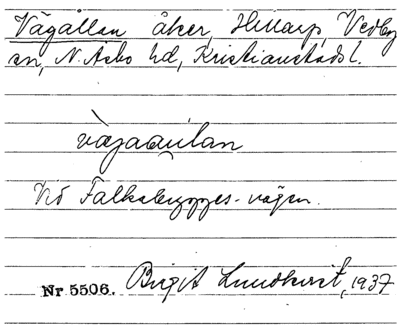 Vägållan åker, Hillarp, Vedby
sn, N. Åsbo hd, Kristianstads l.
vägaaulan
Vid Falkabygges-vägen.
Nr 5506. Birgit Lundkvist, 1937